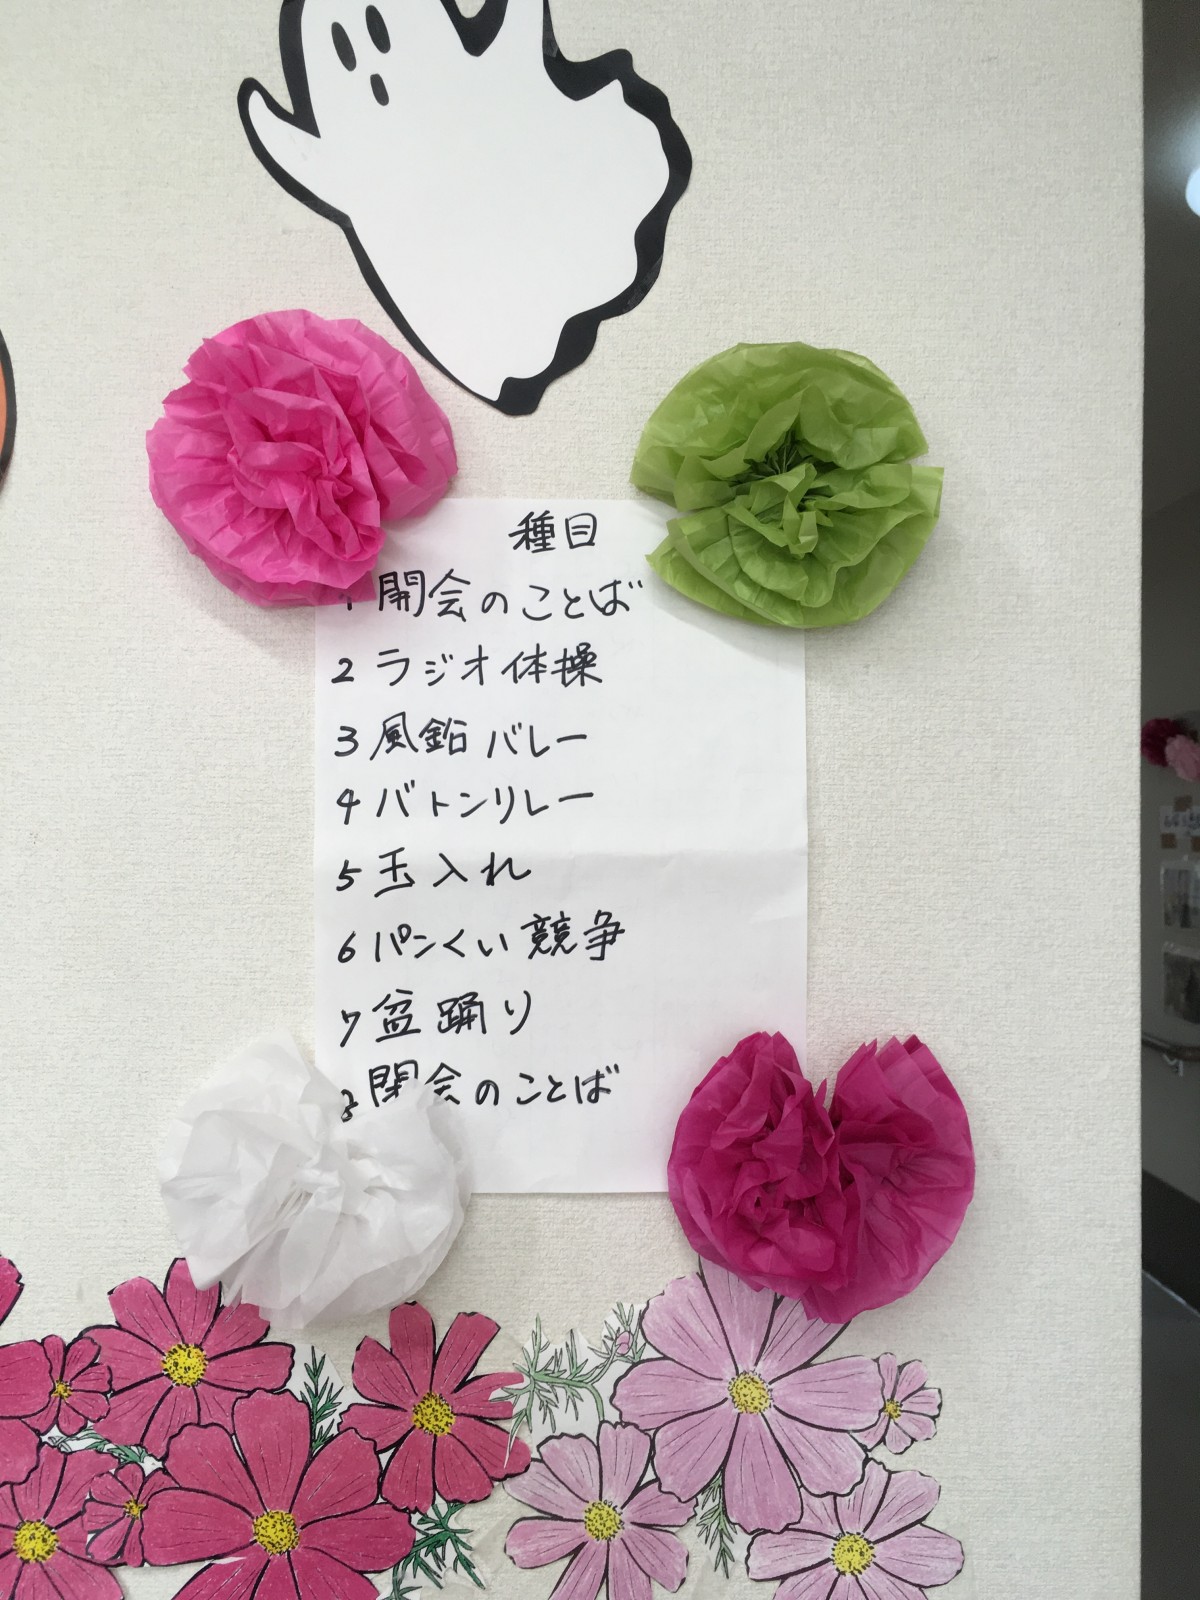 種目
1 開会のことば
2 ラジオ体操
3 風鉛バレー
4 バトンリレー
5 玉入れ
6 パンくい競争
7 盆踊り
8 閉会のことば